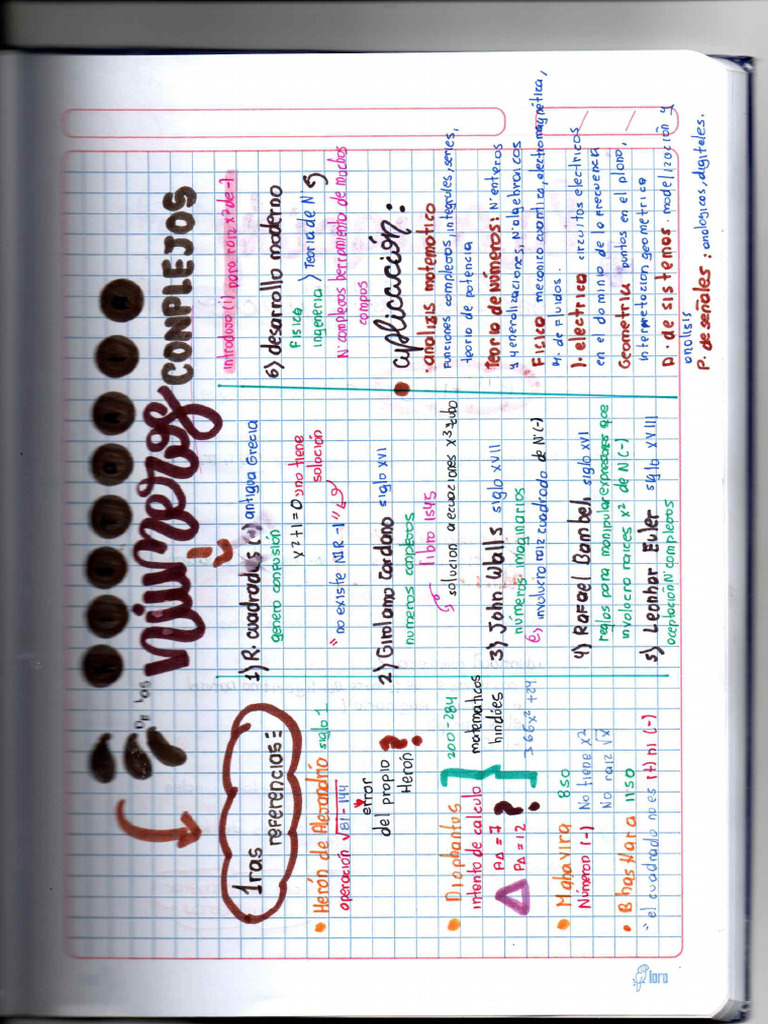 HISTORIA
De los
números
CONPLEJOS
1ras
referencias:
• Herón de Alexandría siglo 1
operación √81-144
error
del propio
Herón ?
• Diophantus 200-284
intento de calculo
PΔ = 7
PΔ = 12
?
matematicos
hindúes
366x² + 24
• Mahavira 850
Número (-) No tiene x²
No raiz √x
• Bhaskara 1150
" el cuadrado no es (+) ni (-)
1) R. cuadradas (-) antigua Grecia
genero confusión
x²+1=0 no tiene
solución
" no existe N R -1 "
2) Girolamo Cardano siglo XVI
numeros complejos
libro 1545
solucion a ecuaciones x³ cubo
3) John Walls siglo XVII
números imaginarios
involucro raiz cuadrada de N (-)
4) Rafael Bombeli siglo XVI
reglas para manipular expresiones que
involucro raices x² de N (-)
5) Leonhar Euler siglo XVIII
aceptación N° complejos
introdujo (i) para raiz x² de -1
6) desarrollo moderno
Fisica
ingenieria > Teoria de N
N° complejos herramienta de muchos
campos
• aplicación:
• analisis matematico
funciones complejas, integrales, series,
teoria de potencia
Teoria de Números: N° enteros
y generalizaciones, N° algebraicos
Fisica mecanica cuantica, electromagnética,
M. de Fluidos.
I. electrica circuitos electricos
en el dominio de la frecuencia
Geometria puntos en el plano,
interpretación geometrica
A. de sistemas. modelización y
analisis
P. de señales: analogicas, digitales.
loro